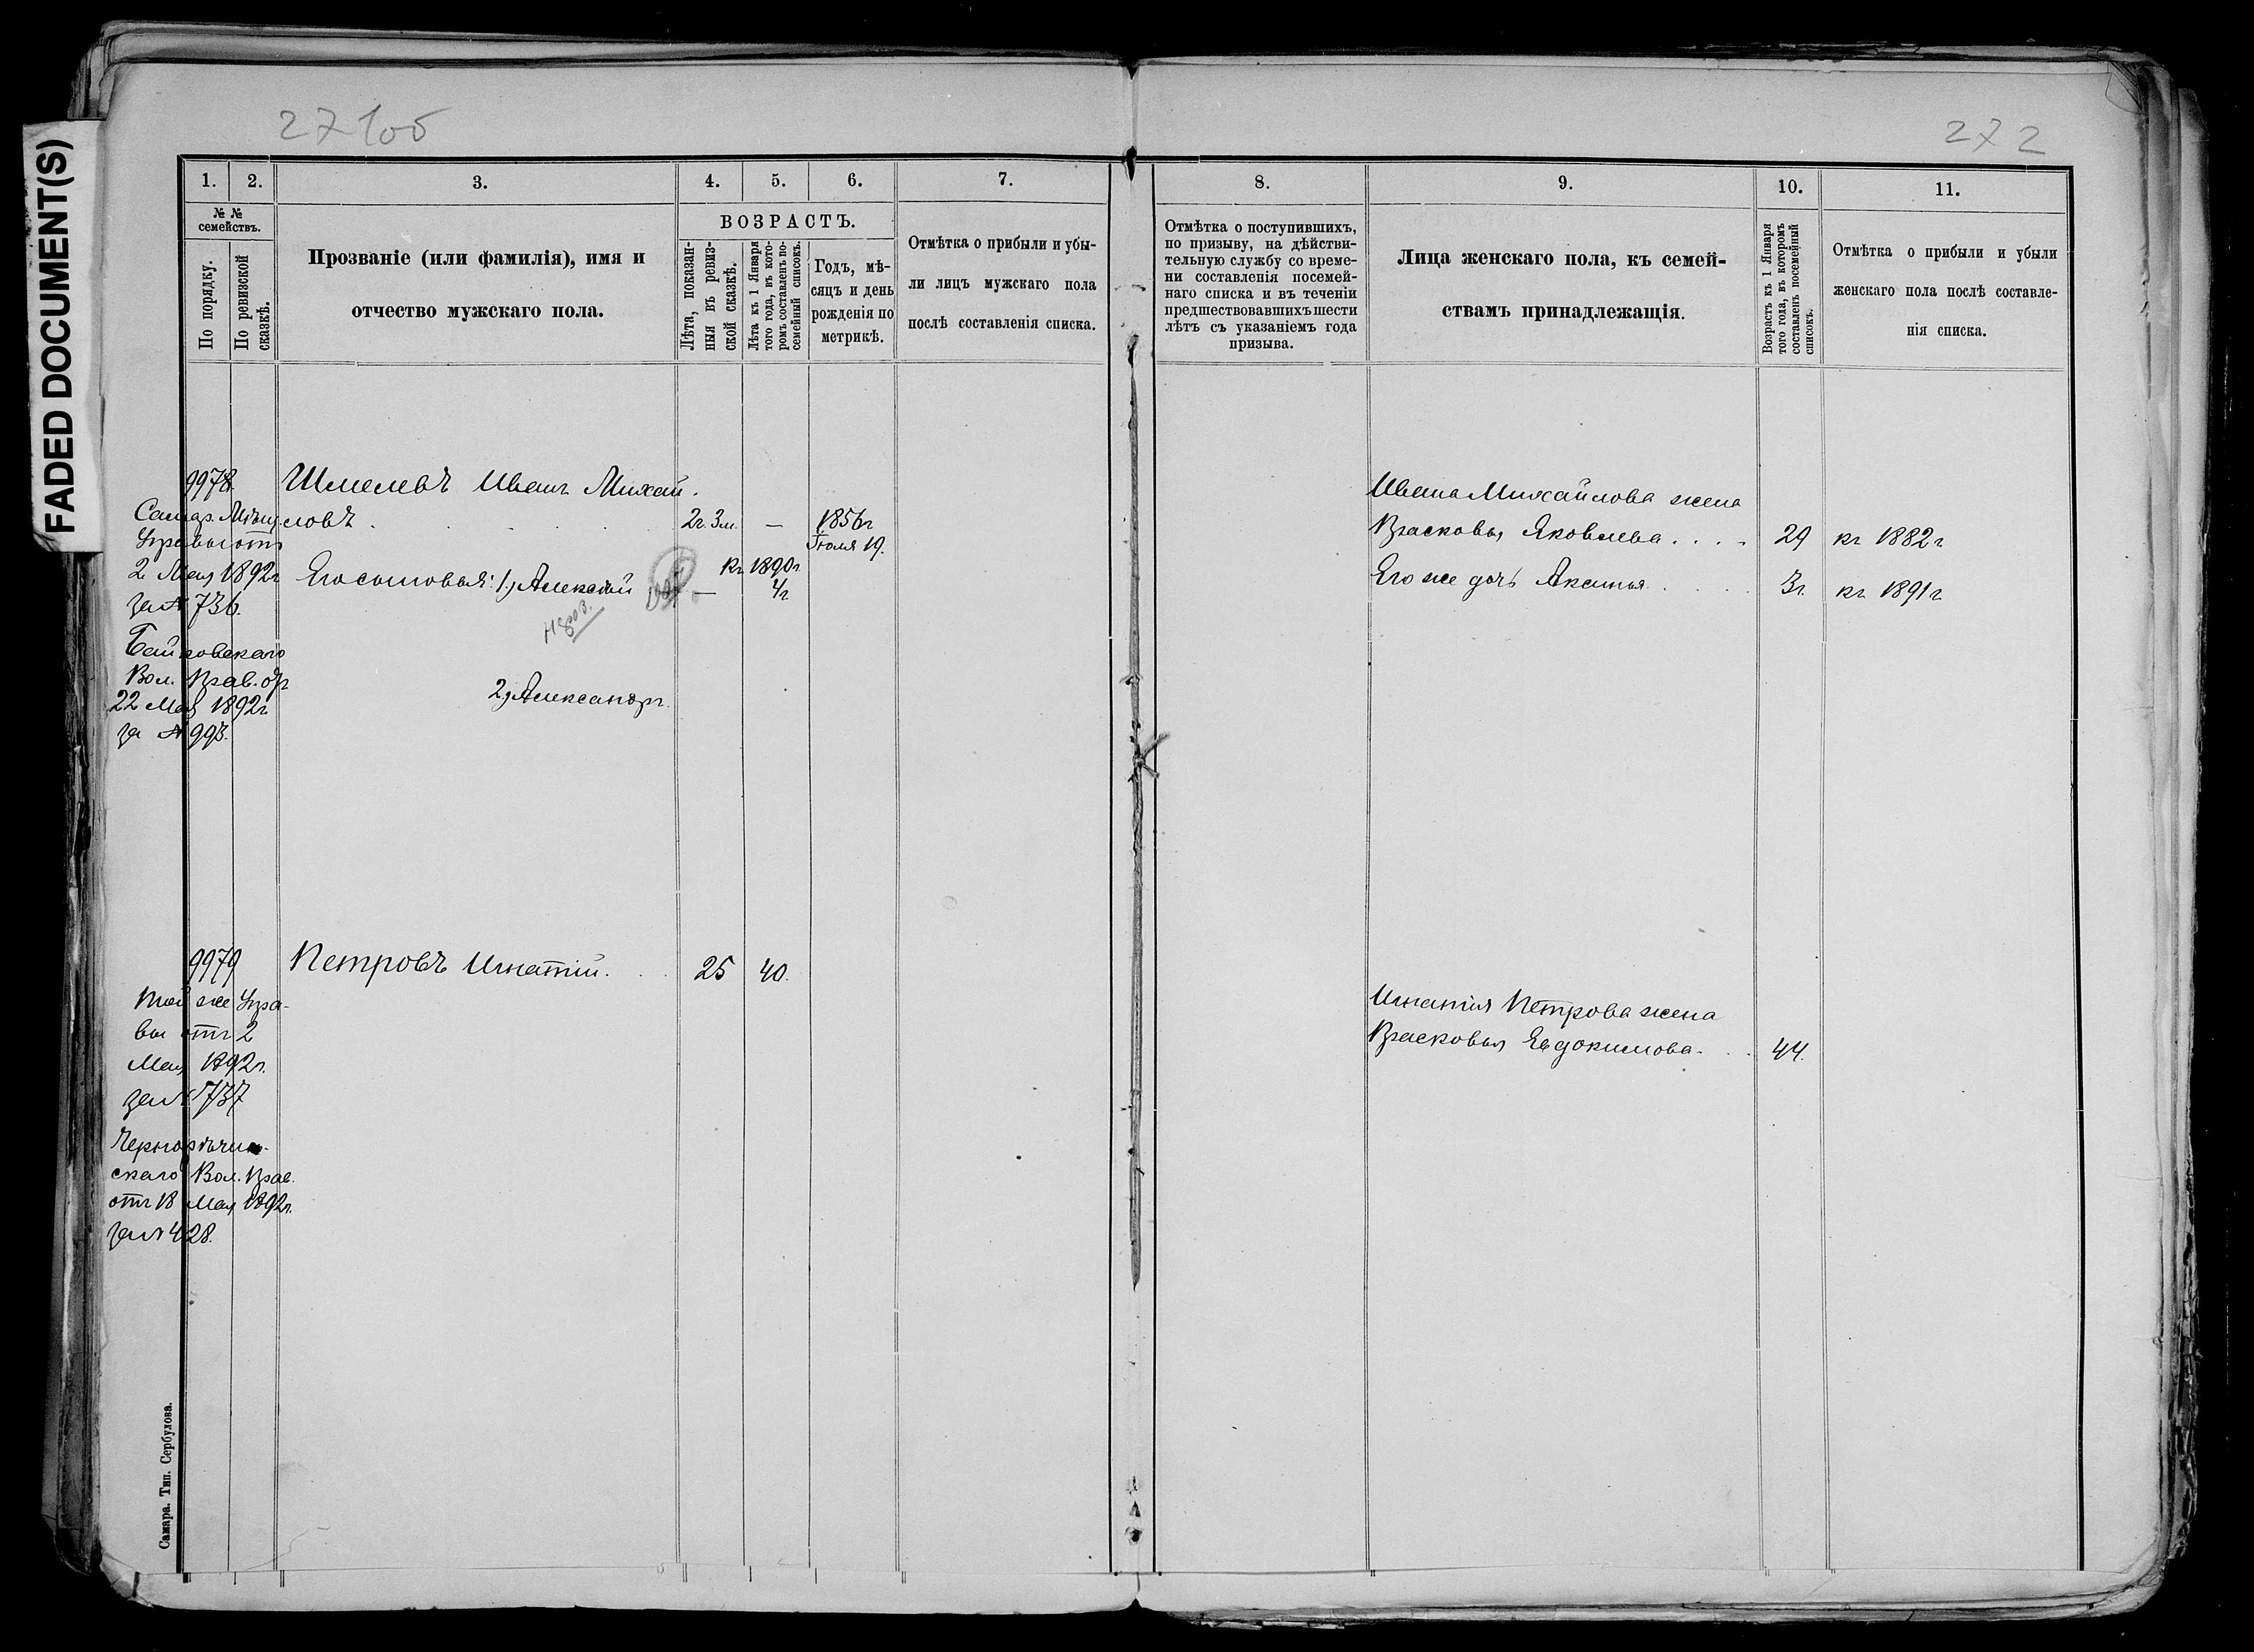 FADED DOCUMENT(S)
271об
272
1.
2.
3.
4.
5.
6.
7.
8.
9.
10.
11.
№ №
семействъ.
По порядку.
По ревизской
сказкѣ.
Прозваніе (или фамилія), имя и
отчество мужскаго пола.
ВОЗРАСТЪ.
Лѣта, показан-
ныя въ ревиз-
ской сказкѣ.
Лѣта къ 1 Января
того года, въ кото-
ромъ составленъ по-
семейный списокъ.
Годъ, мѣ-
сяцъ и день
рожденія по
метрикѣ.
Отмѣтка о прибыли и убы-
ли лицъ мужскаго пола
послѣ составленія списка.
Отмѣтка о поступившихъ,
по призыву, на дѣйстви-
тельную службу со време-
ни составленія посемей-
наго списка и въ теченіи
предшествовавшихъ шести
лѣтъ съ указаніемъ года
призыва.
Лица женскаго пола, къ семей-
ствамъ принадлежащія.
Возрастъ къ 1 Января
того года, въ которомъ
составленъ посемейный
списокъ.
Отмѣтка о прибыли и убыли
женскаго пола послѣ составле-
нія списка.
9978.
Самар. Мѣщ.
Управы отъ
2 Мая 1892г
за № 736.
Байковскаго
Вол. Прав. от
22 Мая 1892г.
за № 993.
Шмелевъ Иванъ Михай-
ловъ . 2г. 3м. — 1856г
Іюля 19.
Его сыновья: 1) Алексѣй — 4г.
кг 1890г
2) Александръ.
Ивана Михайлова жена
Прасковья Яковлева . . . . 29 кг 1882г
Его же дочь Аксинья . . . . 3г. кг 1891г.
9979
Той же Упра-
вы отъ 2
Мая 1892г.
за № 737
Чернорѣчин-
скаго Вол. Прав.
отъ 18 Мая 1892г.
за № 428.
Петровъ Игнатій. . . 25 40.
Игнатія Петрова жена
Прасковья Евдокимова. . . 44.
Самара. Тип. Сербулова.